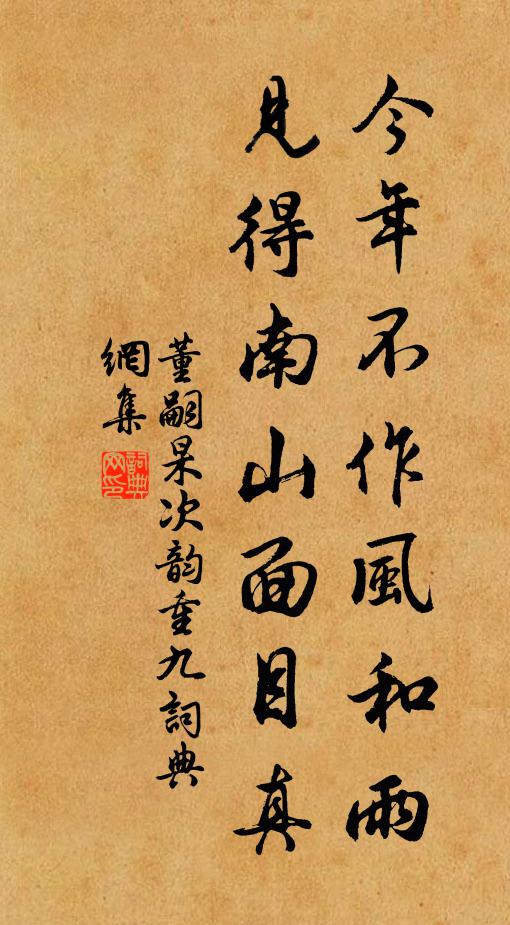 今年不作風和雨
見得南山面目真
董嗣杲次韵重九詞典
網集
詞典網印